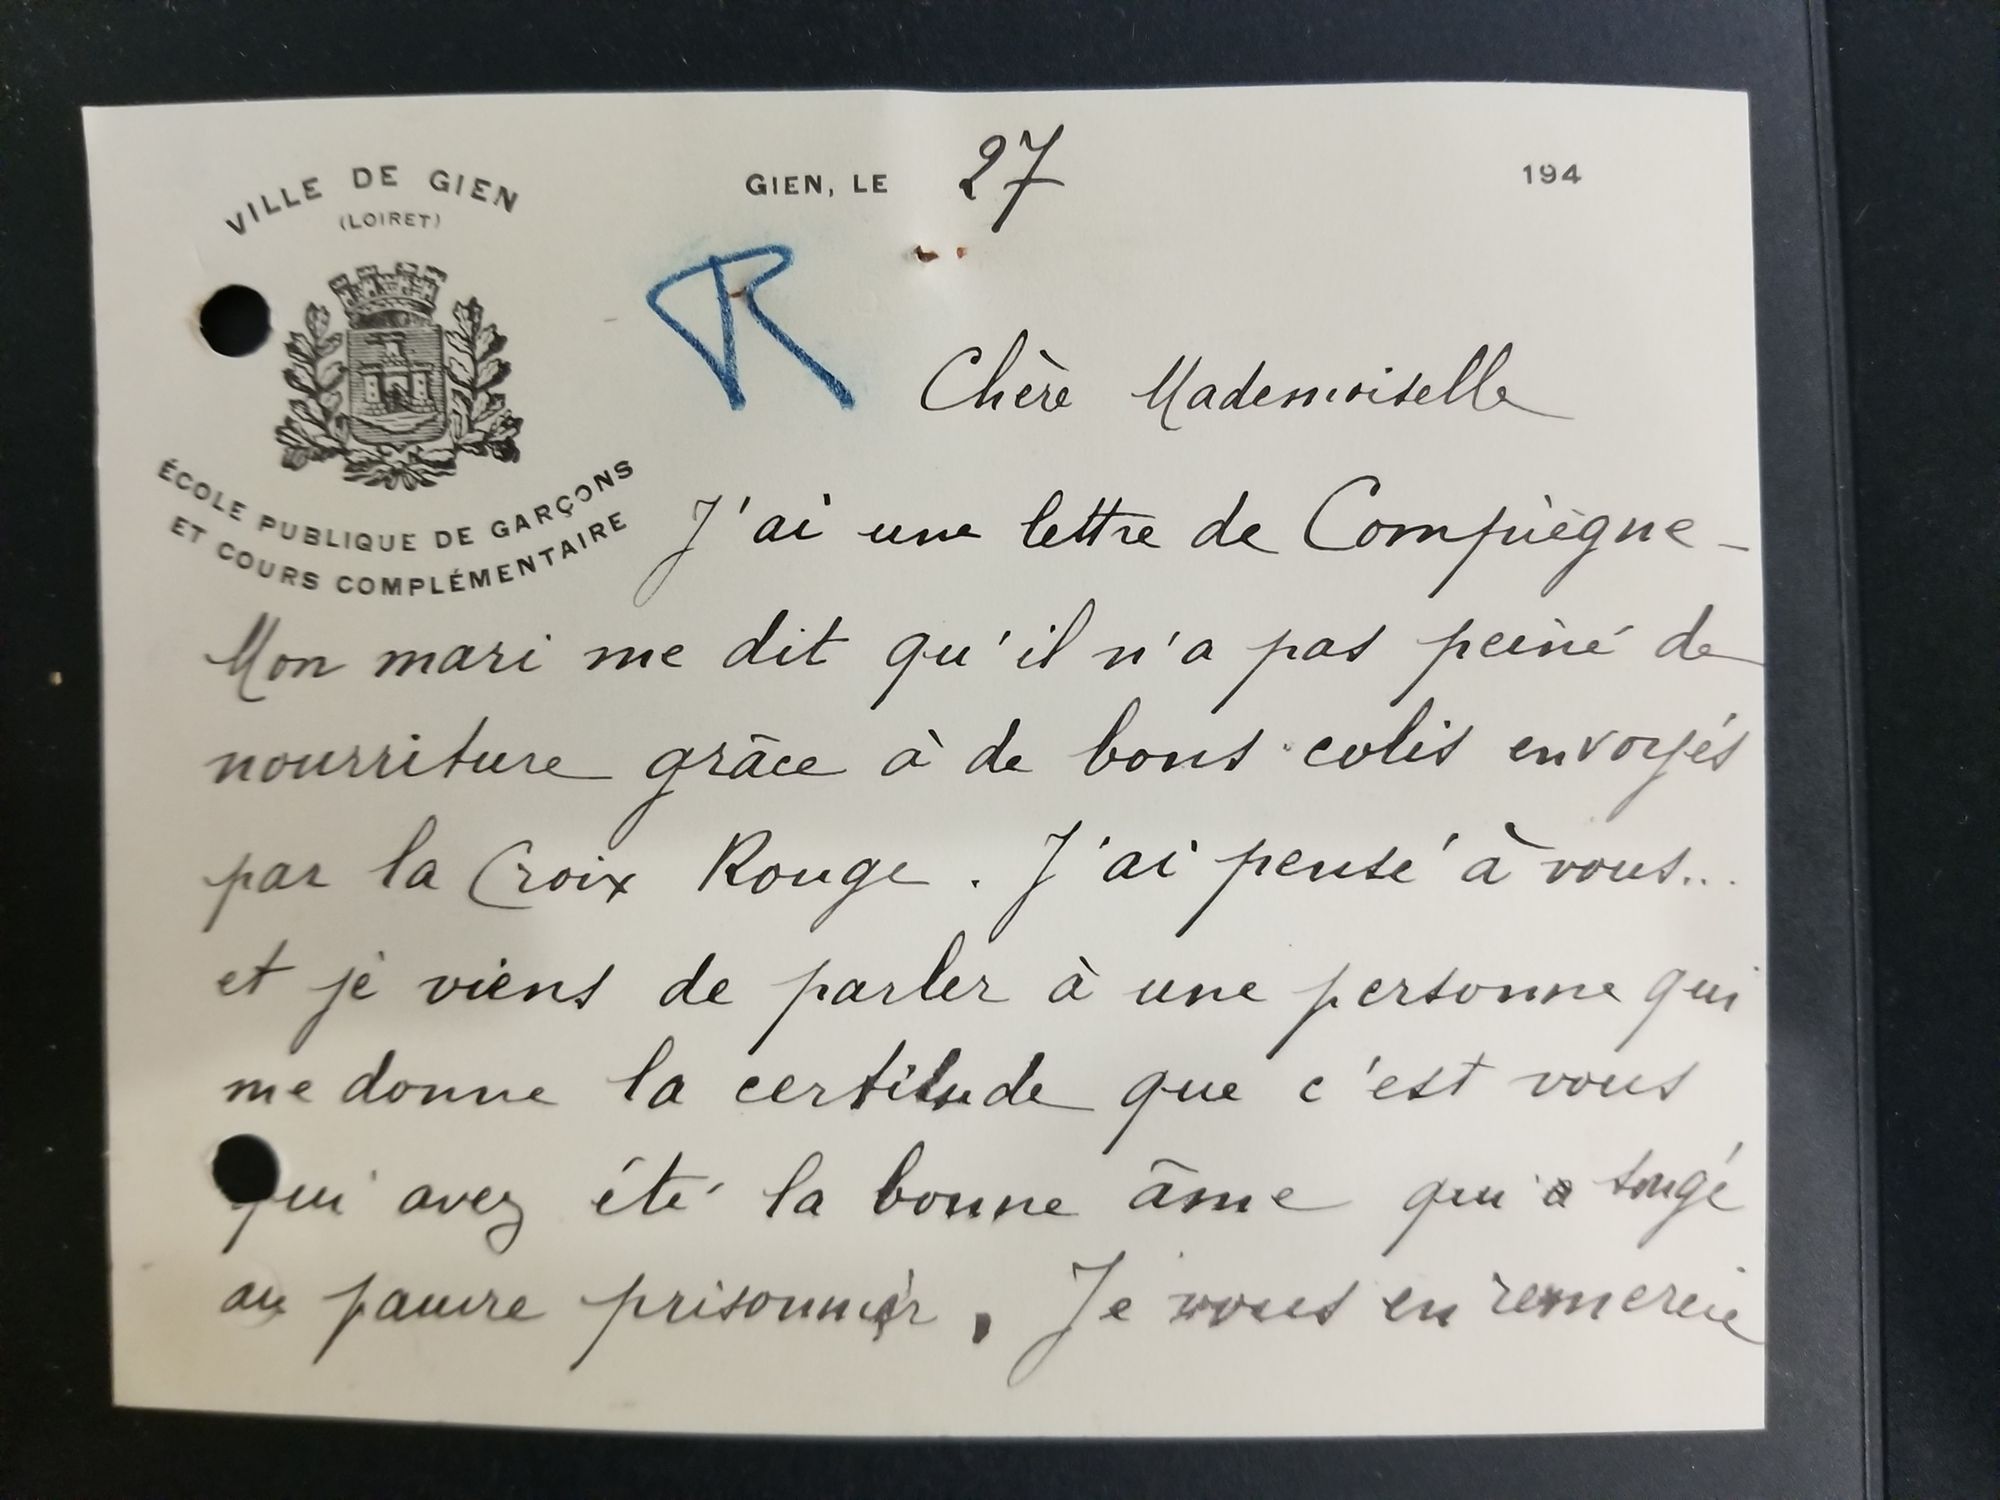 VILLE DE GIEN
(LOIRET)
GIEN, LE 27 194
R
ÉCOLE PUBLIQUE DE GARÇONS
ET COURS COMPLÉMENTAIRE
Chère Mademoiselle
J'ai une lettre de Compiègne -
Mon mari me dit qu'il n'a pas peiné de
nourriture grâce à de bons colis envoyés
par la Croix Rouge. J'ai pensé à vous...
et je viens de parler à une personne qui
me donne la certitude que c'est vous
qui avez été la bonne âme qui a songé
au pauvre prisonnier. Je vous en remercie